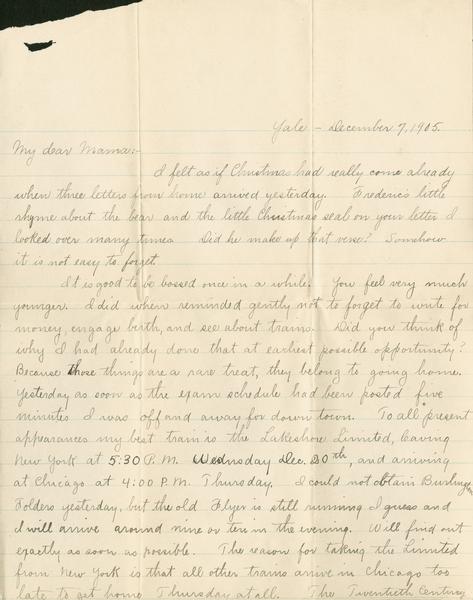 Yale - December 7, 1905.
My dear Mama:-
I felt as if Christmas had really come already
when three letters from home arrived yesterday. Frederic's little
rhyme about the bear and the little Christmas seal on your letter I
looked over many times. Did he make up that verse? Somehow
it is not easy to forget
It is good to be bossed once in a while. You feel very much
younger. I did when reminded gently not to forget to write for
money, engage birth, and see about trains. Did you think of
why I had already done that at earliest possible opportunity?
Because those things are a rare treat, they belong to going home.
Yesterday as soon as the exam schedule had been posted five
minutes I was off and away for down town. To all present
appearances my best train is the Lakeshore Limited, leaving
New York at 5:30 P.M. Wednsday Dec. 20th, and arriving
at Chicago at 4:00 P.M. Thursday. I could not obtain Burlington
Folders yesterday, but the old Flyer is still running I guess and
I will arrive around nine or ten in the evening. Will find out
exactly as soon as possible. The reason for taking the Limited
from New York is that all other trains arrive in Chicago too
late to get home Thursday at all. The Twentieth Century